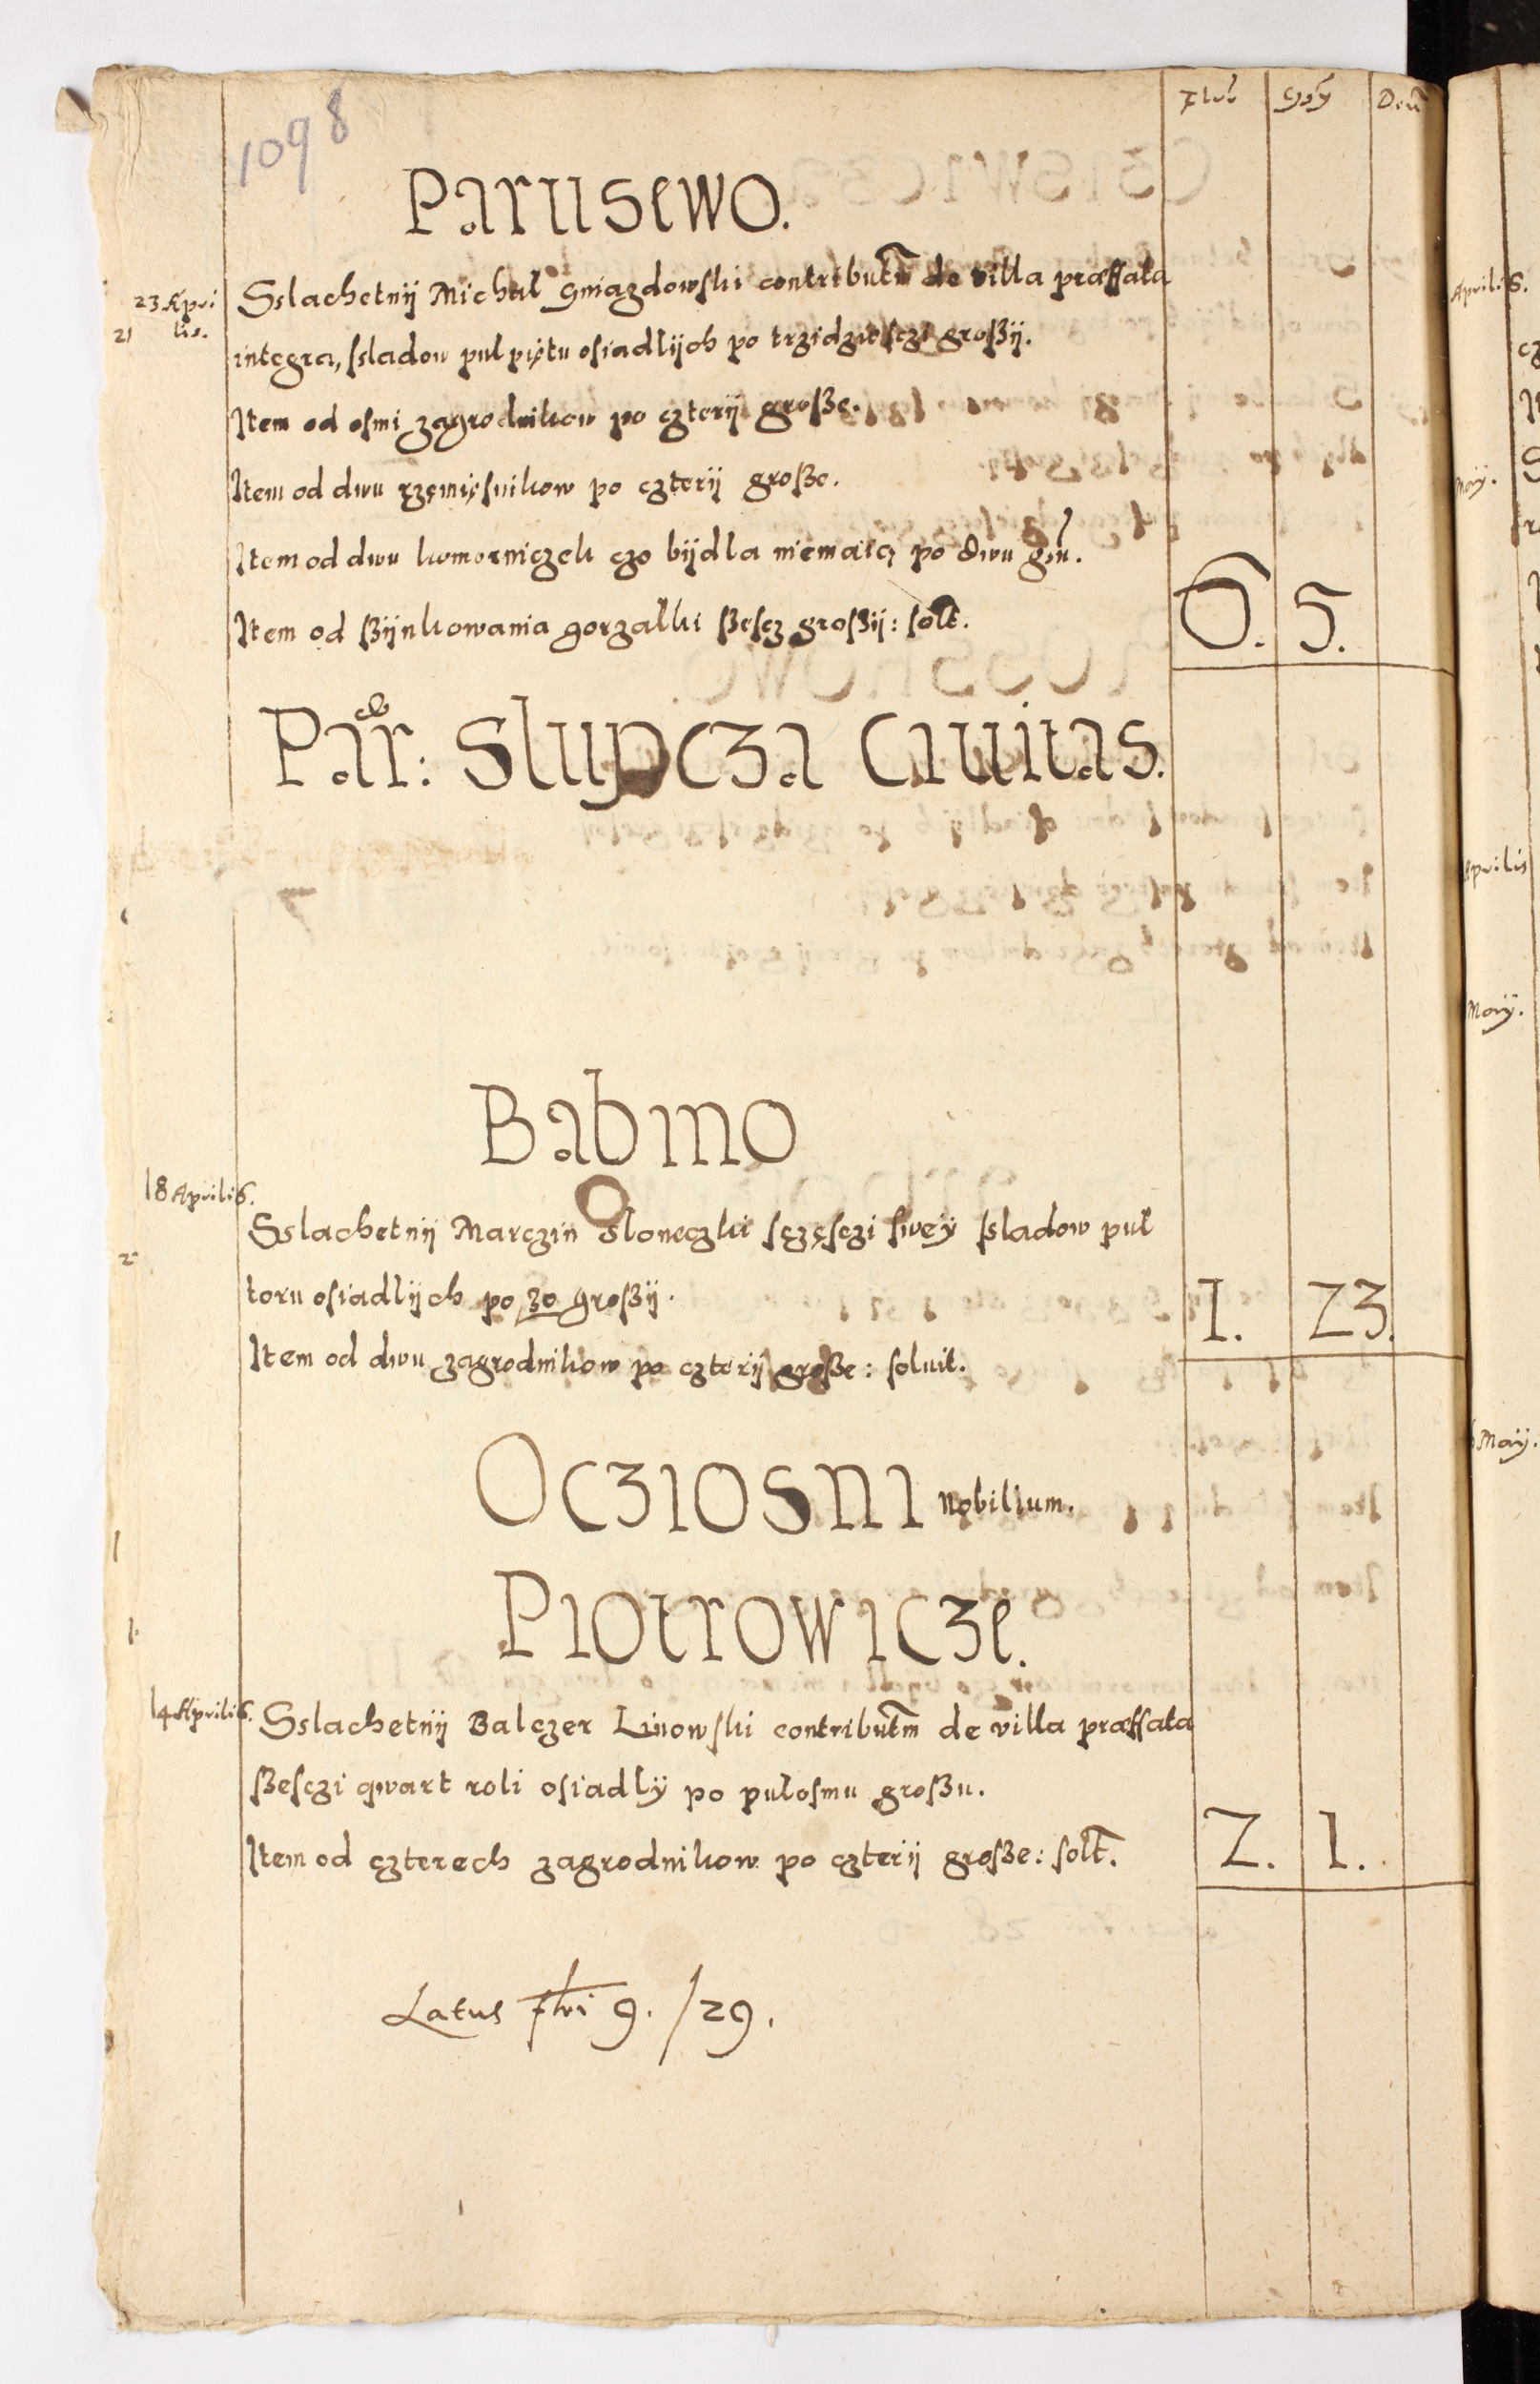 1098
Flor Gros Den
Parusewo.
23 Apri
lis.
21
Sslachetnij Michał Gniazdowski contributm̃ de villa præffata
integra, ssladow pul piętu osiadlijch po trzidziesczi großij.
Item od osmi zagrodnikow po czterij große.
Item od dwu rzęmięsnikow po czterij große.
Item od dwu komorniczek czo bijdla niemaią po dwu gru.
Item od ßijnkowania gorzałki ßescz großij: solt.
6. 5.
Par: Slupcza Ciuitas.
Babino
18 Aprilis.
2
Sslachetnij Marczin Sloneczki sczęsczi swey ssladow puł
toru osiadlijch po 30 großij.
Item od dwu zagrodnikow po czterij große: soluit.
1. 23.
Ocziosna nobilium.
Piotrowicze.
14 Aprilis.
Sslachetnij Balczer Linowski contributm̃ de villa præffata
ßesczi qwart roli osiadlÿ po pułosmu großu.
Item od czterech zagrodnikow po czterij große: solt.
2. 1.
Latus flori 9. /29.
Aprilis.
Maij.
Aprilis
Maij.
Maij.